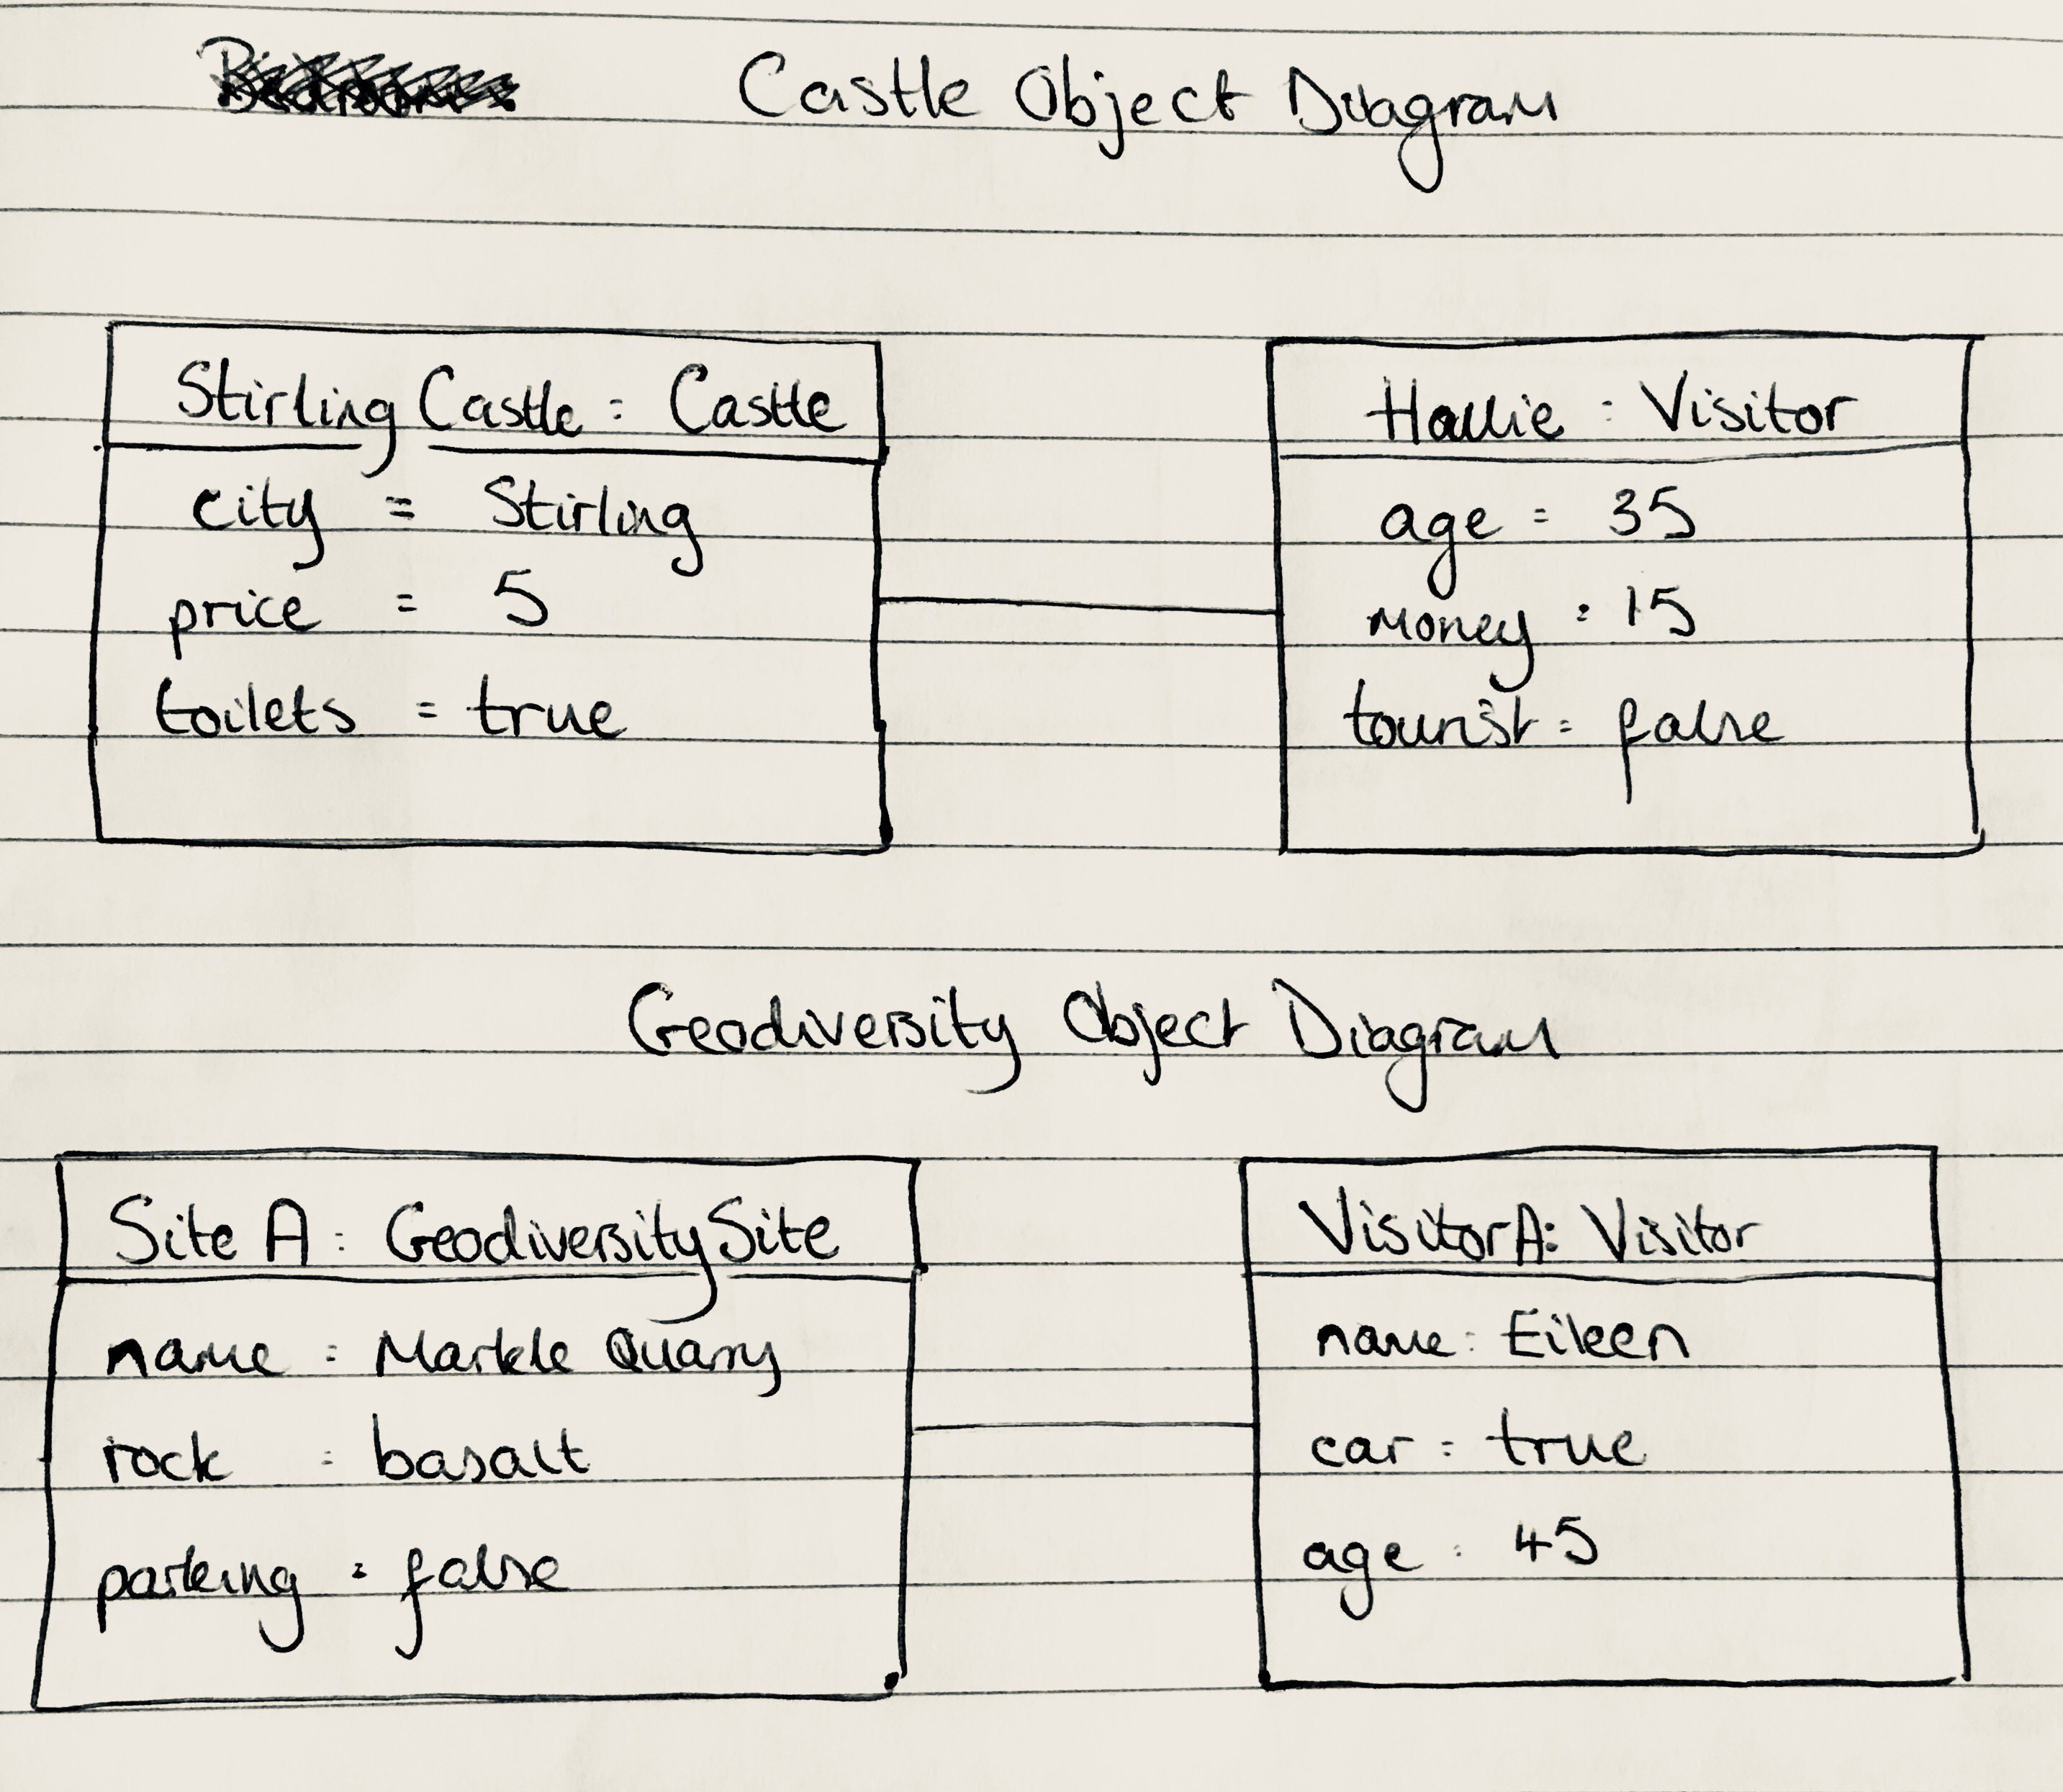 Castle Object Diagram
Stirling Castle : Castle
city = Stirling
price = 5
toilets = true
Hallie : Visitor
age = 35
money = 15
tourist = false
Geodiversity Object Diagram
Site A : Geodiversity Site
name = Markle Quarry
rock = basalt
parking = false
VisitorA: Visitor
name = Eileen
car = true
age = 45